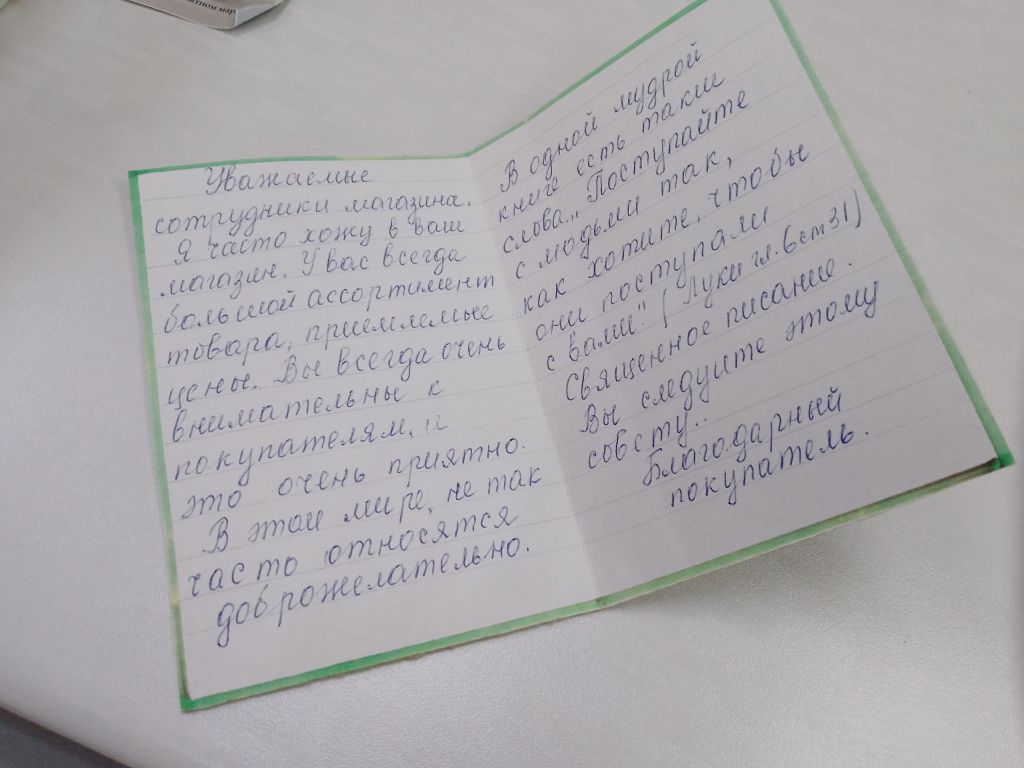 Уважаемые
сотрудники магазина.
Я часто хожу в ваш
магазин. У вас всегда
большой ассортимент
товара, приемлемые
цены. Вы всегда очень
внимательны к
покупателям, и
это очень приятно.
В этом мире, не так
часто относятся
доброжелательно.
В одной мудрой
книге есть такие
слова „Поступайте
с людьми так,
как хотите, чтобы
они поступали
с вами." (Луки гл. 6 ст 31)
Священное писание.
Вы следуите этому
совету..
Благодарный
покупатель.